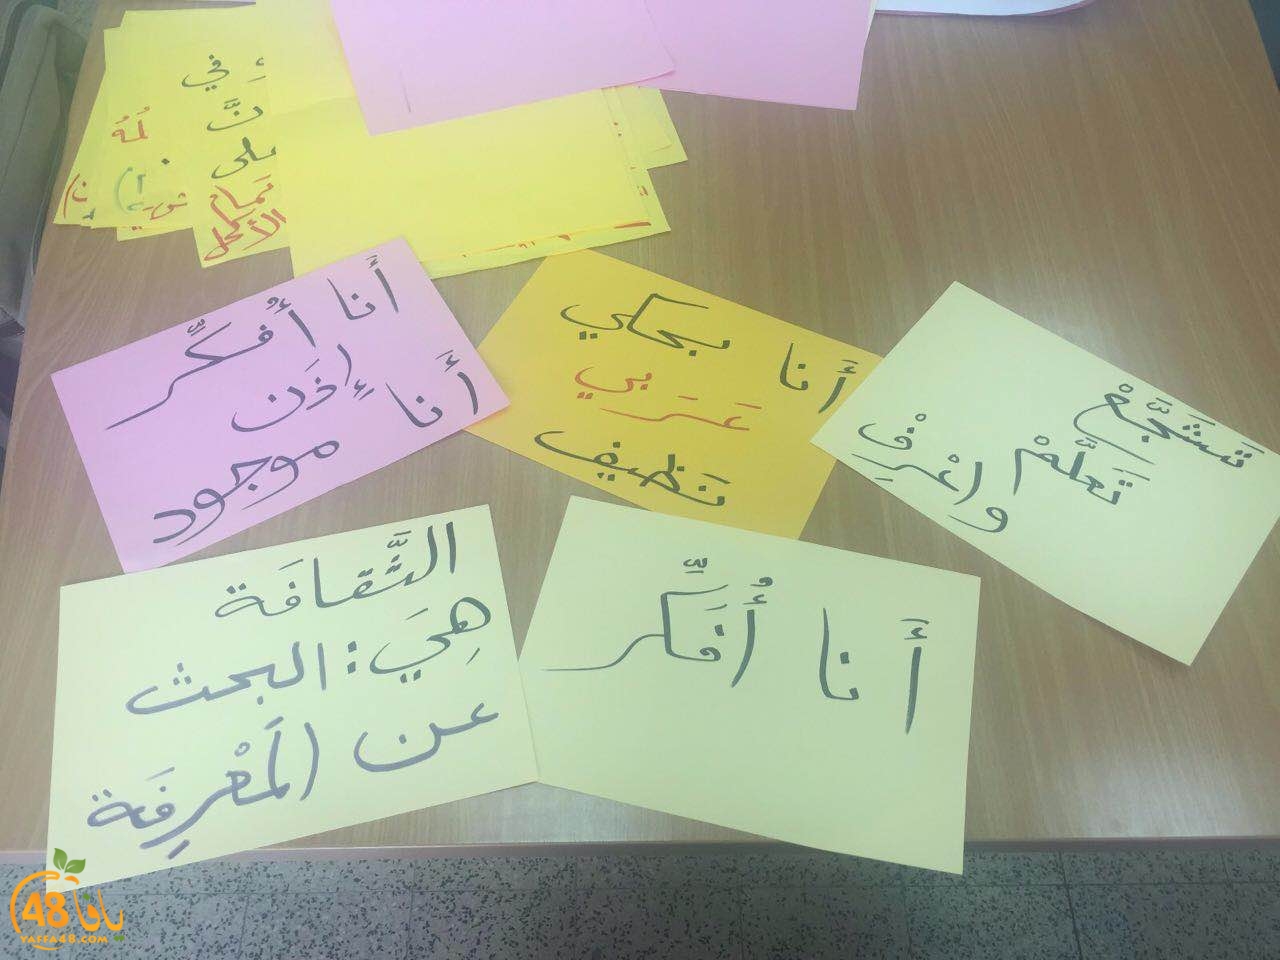 في
نَّ
على
أَنا أُفَكِّر
إِذَن
أَنا مَوجود
أَنا بحكي
عَرَبي
نَظيف
تَشَجَّعْ
تَعَلَّمْ
واعْرِفْ
الثَّقافَة
هِيَ: البحث
عن المَعْرِفَة
أَنا أُفَكِّر
يافا 48
YAFFA48.COM